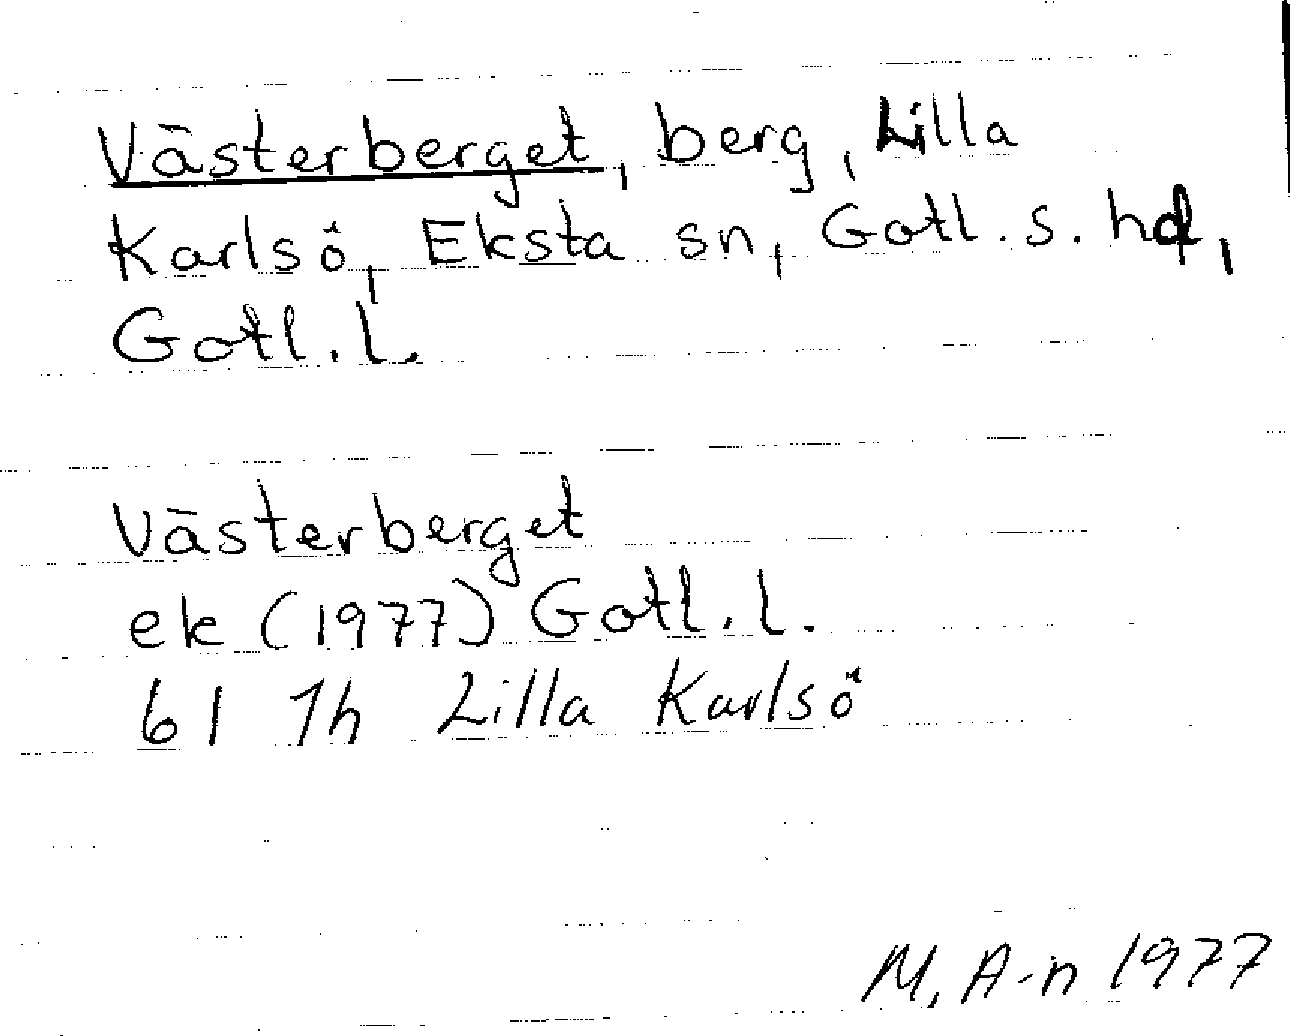 Västerberget, berg, Lilla
Karlsö, Eksta sn, Gotl. s. hd,
Gotl. l.
Västerberget
ek (1977) Gotl. l.
61 1h Lilla Karlsö
M. A-n 1977